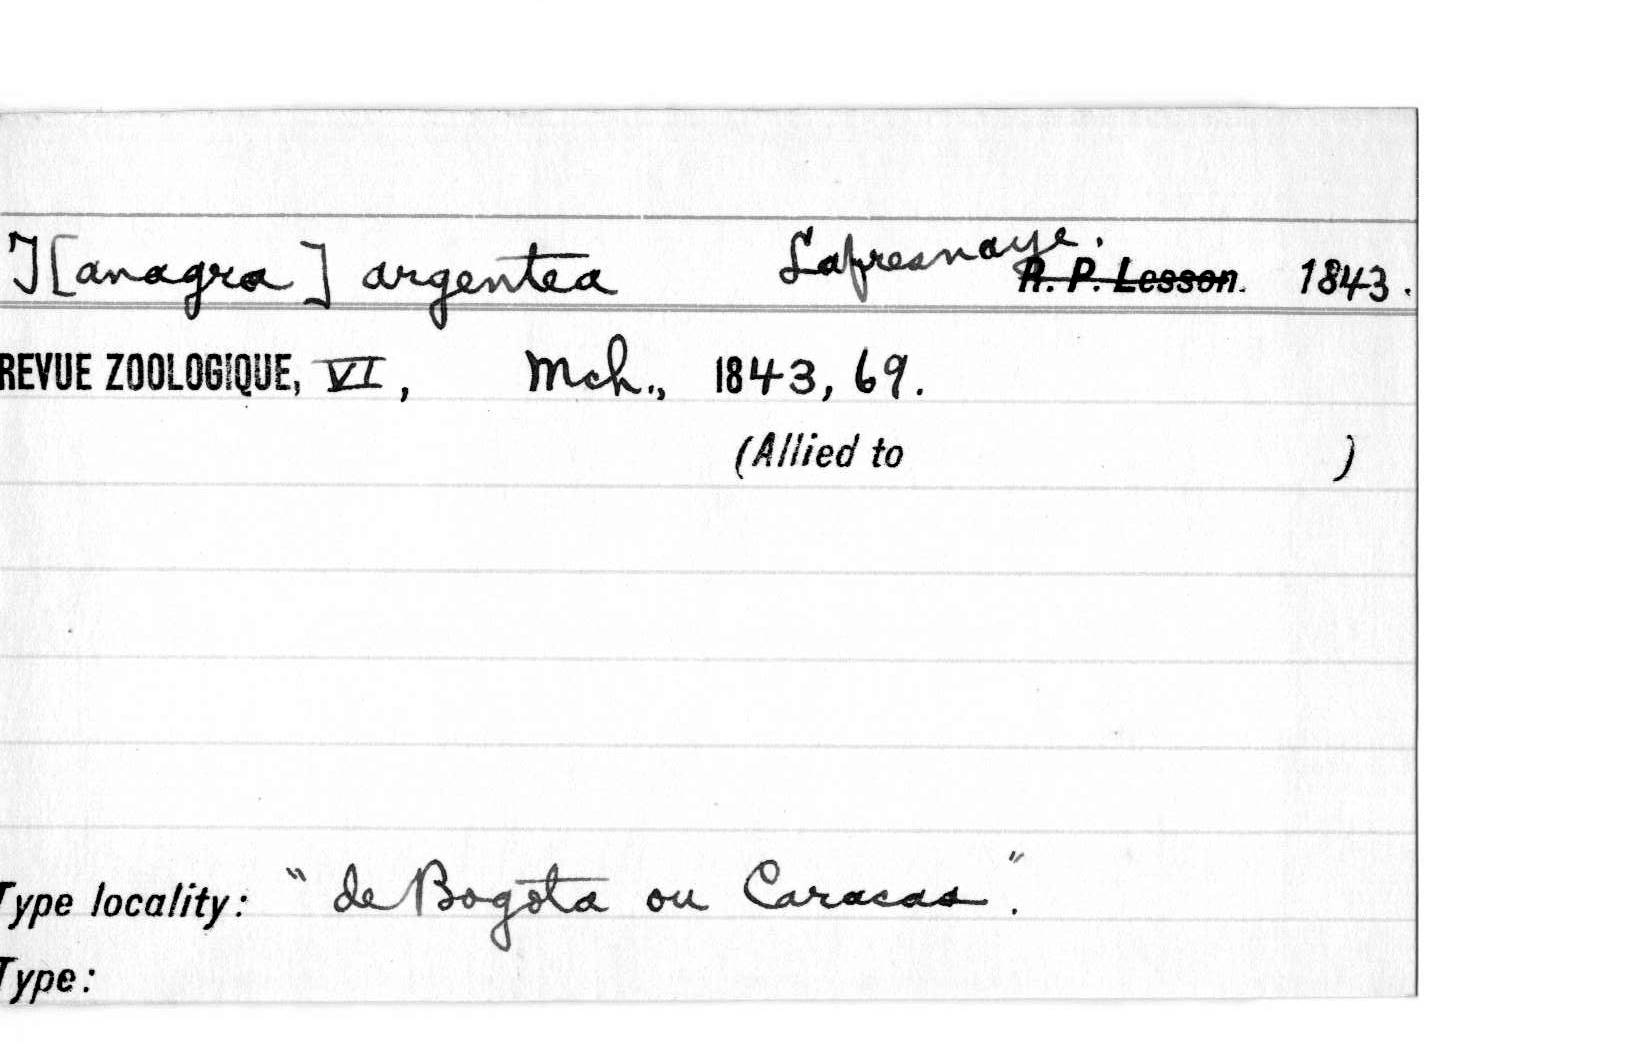 T[anagra] argentea Lafresnaye. R. P. Lesson. 1843.
REVUE ZOOLOGIQUE, VI, Mch., 1843, 69.
(Allied to )
Type locality: "de Bogota ou Caracas".
Type: